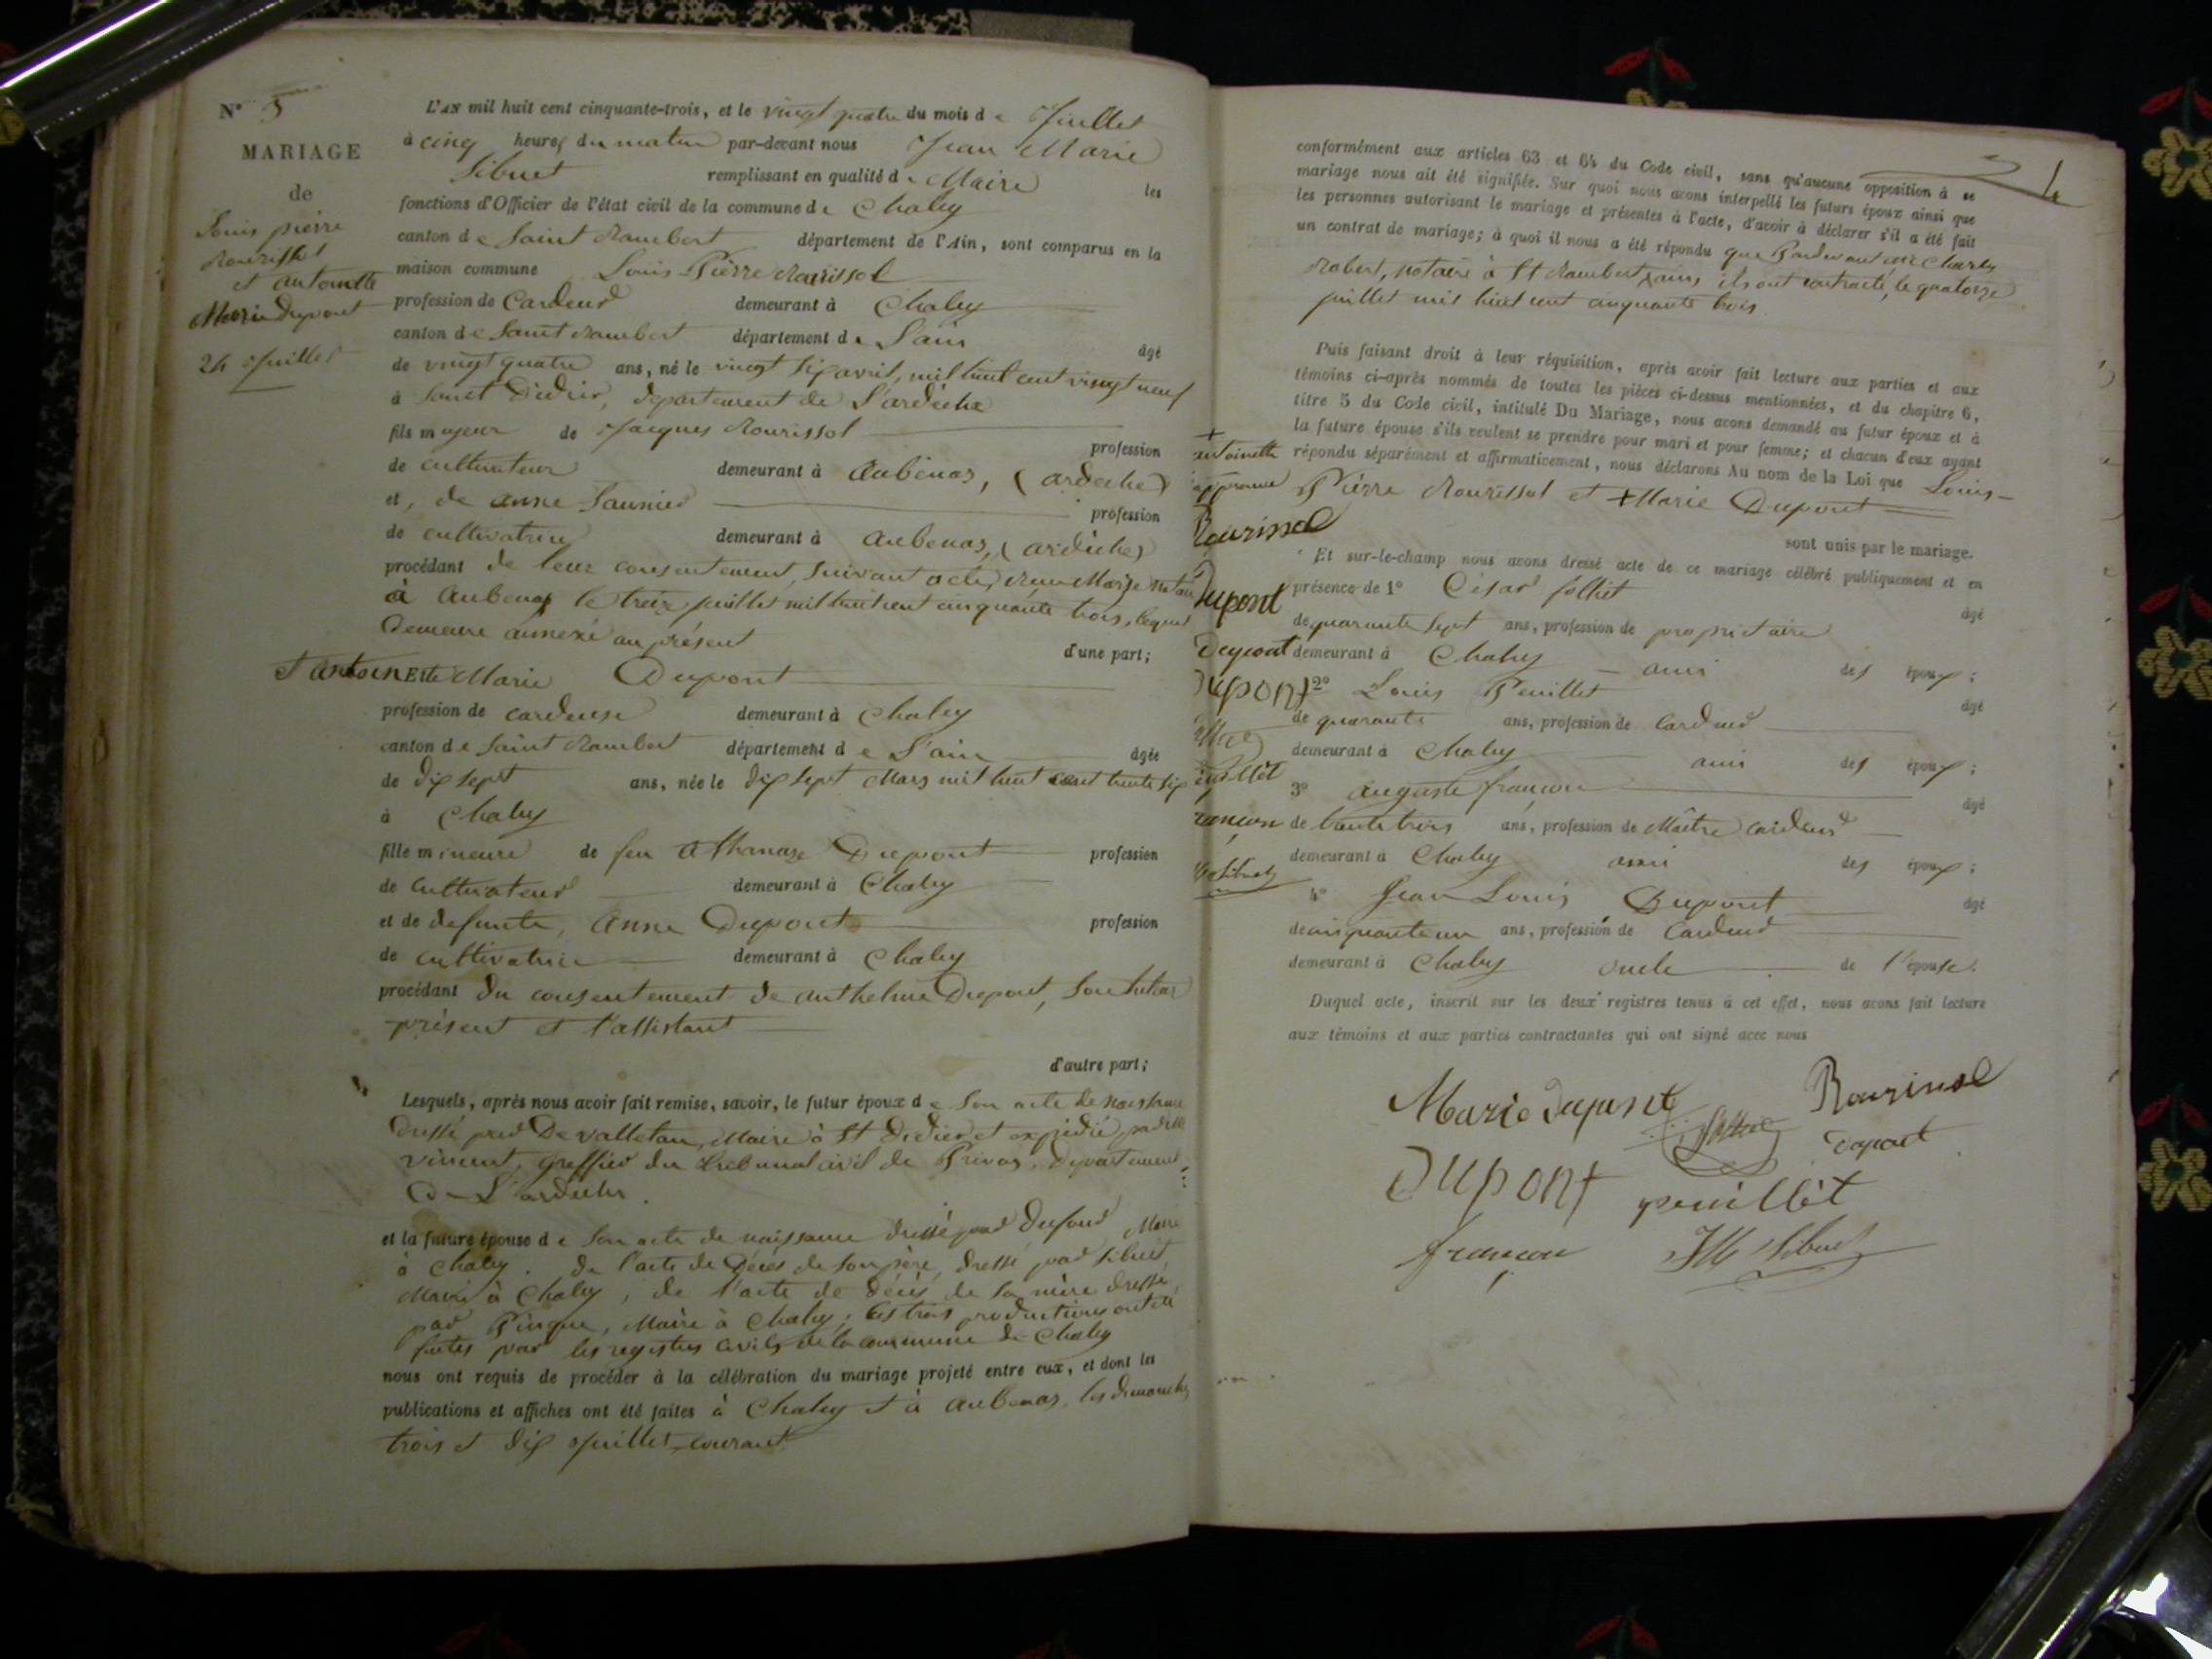 N° 5
MARIAGE
de
Louis pierre
Rourissol
et antoinette
Marie Dupont
24 Juillet
L'AN mil huit cent cinquante-trois, et le vingt quatre du mois de Juillet
à cinq heures du matin par-devant nous Jean Marie
Sibuet remplissant en qualité de Maire les
fonctions d'Officier de l'état civil de la commune de Chaley
canton de Saint Rambert département de l'Ain, sont comparus en la
maison commune Louis Pierre Rourissol
profession de Cardeur demeurant à Chaley
canton de Saint Rambert département de L'ain âgé
de vingt quatre ans, né le vingt six avril, mil huit cent vingt neuf
à Saint Didier, département de L'ardèche
fils majeur de Jacques Rourissol profession
de cultivateur demeurant à Aubenas, (ardeche)
et, de anne Saunier profession
de cultivatrice demeurant à aubenas, (ardèche)
procédant de leur consentement, suivant acte, notaire
à Aubenas le treize juillet mil huit cent cinquante trois, lequel
demeure annexé au présent d'une part;
Et antoinEtte Marie Dupont
profession de cardeuse demeurant à Chaley
canton de Saint Rambert département de L'ain âgée
de dix sept ans, née le dix sept Mars mil huit cent trente six
à Chaley
fille mineure de feu Athanaze Dupont profession
de cultivateur demeurant à Chaley
et de defunte, Anne Dupont profession
de cultivatrice demeurant à Chaley
procédant du consentement de anthelme Dupont, son tuteur
présent et l'assistant
d'autre part;
Lesquels, après nous avoir fait remise, savoir, le futur époux de son acte de naissance
dressé par De valleton, Maire à St Didier et expédié par
vincent, greffier du tribunal civil de Privas, département
De L'ardèche.
et la future épouse de son acte de naissance dressé par Dufour Maire
à Chaley. de l'acte de décès de son père, dressé par Sibuet
Maire à Chaley, de l'acte de décès de sa mère dressé
par Pingue, Maire à Chaley; les trois productions ont été
faites par les registres civils de la commune de Chaley
nous ont requis de procéder à la célébration du mariage projeté entre eux, et dont les
publications et affiches ont été faites à Chaley et à Aubenas, les dimanches
trois et dix Juillet courant
4
conformément aux articles 63 et 64 du Code civil, sans qu'aucune opposition à ce
mariage nous ait été signifiée. Sur quoi nous avons interpellé les futurs époux ainsi que
les personnes autorisant le mariage et présentes à l'acte, d'avoir à déclarer s'il a été fait
un contrat de mariage; à quoi il nous a été répondu que Pardevant me Charles
Robert, notaire à St Rambert, ain, ils ont contracté, le quatorze
juillet mil huit cent cinquante trois.
Puis faisant droit à leur réquisition, après avoir fait lecture aux parties et aux
témoins ci-après nommés de toutes les pièces ci-dessus mentionnées, et du chapitre 6,
titre 5 du Code civil, intitulé Du Mariage, nous avons demandé au futur époux et à
la future épouse s'ils veulent se prendre pour mari et pour femme; et chacun d'eux ayant
répondu séparément et affirmativement, nous déclarons Au nom de la Loi que Louis-
Pierre Rourissol et + Marie Dupont
sont unis par le mariage.
+
antoinette
approuvé
Rourissol
Dupont
Dupont
DUPONT
peuillet
françon
Sibuet
Et sur-le-champ nous avons dressé acte de ce mariage célébré publiquement et en
présence de 1° César folliet âgé
de quarante sept ans, profession de propriétaire
demeurant à Chaley ami des époux;
2° Louis Peuillet âgé
de quarante ans, profession de Cardeur
demeurant à Chaley ami des époux;
3° Auguste françon âgé
de trente trois ans, profession de Maître cardeur
demeurant à Chaley ami des époux;
4° Jean Louis Dupont âgé
de cinquante un ans, profession de Cardeur
demeurant à Chaley oncle de l'épouse.
Duquel acte, inscrit sur les deux registres tenus à cet effet, nous avons fait lecture
aux témoins et aux parties contractantes qui ont signé avec nous
Marie Dupont Rourissol
Dupont
DUPONT peuillet
françon JM Sibuet